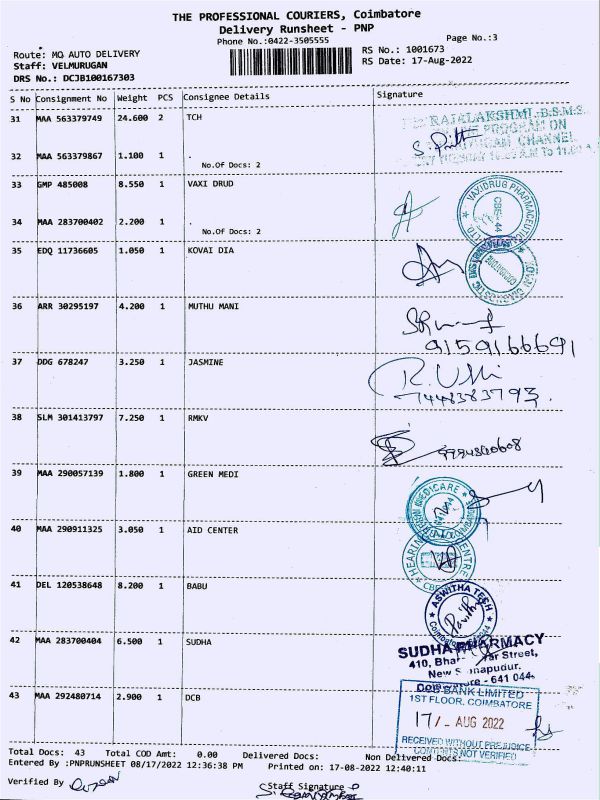 THE PROFESSIONAL COURIERS, Coimbatore
Delivery Runsheet - PNP
Phone No.:0422-3505555
Page No.:3
Route: MG AUTO DELIVERY
Staff: VELMURUGAN
DRS No.: DCJB100167303
RS No.: 1001673
RS Date: 17-Aug-2022
S No Consignment No Weight PCS Consignee Details Signature
31 MAA 563379749 24.600 2 TCH
RAJALAKSHMI, B.S.M.S
PROGRAM ON
CHANNEL
32 MAA 563379867 1.100 1 .
No.Of Docs: 2
33 GMP 485008 8.550 1 VAXI DRUD
VAXIDRUG PHARMACEUTIC
34 MAA 283700402 2.200 1 .
No.Of Docs: 2
35 EDQ 11736605 1.050 1 KOVAI DIA
36 ARR 30295197 4.200 1 MUTHU MANI
9159166691
37 DDG 678247 3.250 1 JASMINE
R. Ushi
7448383793.
38 SLM 301413797 7.250 1 RMKV
39 MAA 290057139 1.800 1 GREEN MEDI
MEDICARE
40 MAA 290911325 3.050 1 AID CENTER
HEARING CENTRE
41 DEL 120538648 8.200 1 BABU
ASWITHA TECH
42 MAA 283700404 6.500 1 SUDHA
SUDHA PHARMACY
410, Street,
New
641 044
43 MAA 292480714 2.900 1 DCB
DCB BANK LIMITED
1ST FLOOR, COIMBATORE
17/- AUG 2022
RECEIVED WITHOUT PREJUDICE
CONTENTS NOT VERIFIED
Total Docs: 43 Total COD Amt: 0.00 Delivered Docs: Non Delivered Docs:
Entered By :PNPRUNSHEET 08/17/2022 12:36:38 PM Printed on: 17-08-2022 12:40:11
Verified By
Staff Signature